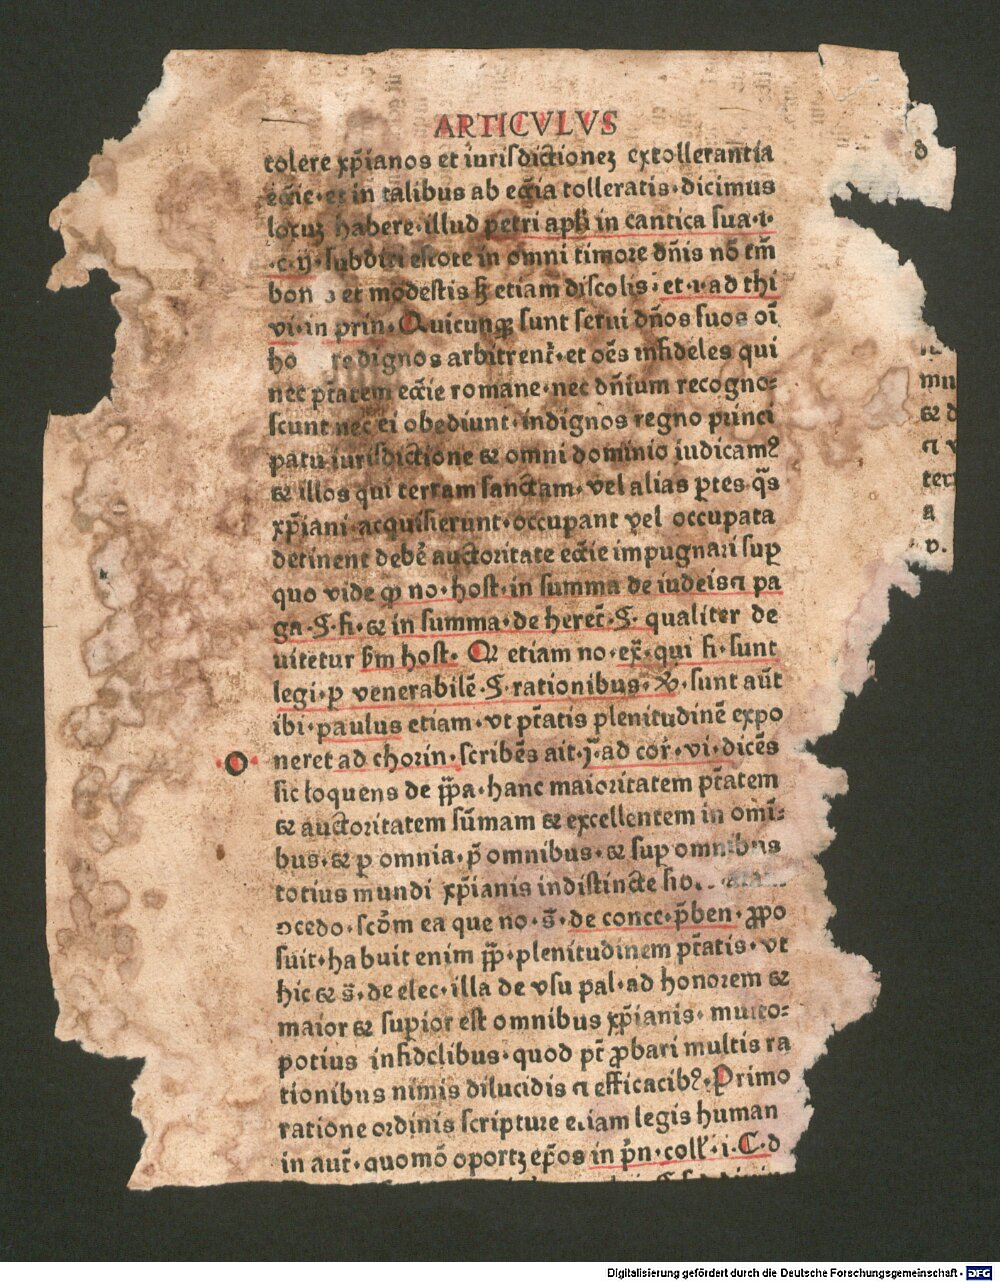 ARTICVLVS
tolere xp̄ianos et iurisdictioneꝫ extollerantia
ecc̄ie· et in talibus ab ecc̄ia tolleratis· dicimus
locuꝫ habere· illud petri apl̄i in cantica sua·1·
·c·ij· subditi estote in omni timore dn̄is nō tm̄
bon et modestis sꝫ etiam discolis· et·1·ad thi
vi·in prin· Quicunqꝫ sunt serui dn̄os suos oī
ho re dignos arbitrent̄· et oēs infideles qui
nec pt̄atem ecc̄ie romane· nec dn̄ium recogno⸗
scunt nec ei obediunt· indignos regno princi
patu iurisdictione ⁊ omni dominio iudicamꝰ
⁊ illos qui terram sanctam· vel alias ꝑtes q̄s
xp̄iani acquisierunt· occupant vel occupata
detinent debēt auctoritate ecc̄ie impugnari suꝑ
quo vide ꝙ no·host·in summa de iudeis ⁊ pa
ga·§·fi·⁊ in summa·de heret̄·§· qualiter de
uitetur sm̄ host· Q etiam no·ex̄·qui fi·sunt
legi·ꝑ venerabilē·§·rationibus· sunt aūt
ibi·paulus etiam·vt pt̄atis plenitudinē expo
O neret ad chorin·scribēs ait·j·ad cor̄·vi·dicēs
sic loquens de pp̄a·hanc maioritatem pt̄atem
⁊ auctoritatem sūmam ⁊ excellentem in omī⸗
bus·⁊ ꝑ omnia·p̄ omnibus·⁊ suꝑ omnibus
totius mundi xp̄ianis indistincte
ↄcedo·scōm ea que no·s̄·de conce·p̄ben·ꝓpo
suit·habuit enim pp̄·plenitudinem pt̄atis·vt
hic ⁊ s̄·de elec·illa de vsu pal·ad honorem ⁊
maior ⁊ suꝑior est omnibus xp̄ianis·multo⸗
potius infidelibus·quod pt̄ ꝓbari multis ra
tionibus nimis dilucidis ⁊ efficacibꝰ·Primo
ratione ordinis scripture etiam legis human
in aut̄·quomō oportꝫ ep̄os in p̄n·coll̄·i·C·d
mu
⁊ d
ter
a
v.
Digitalisierung gefördert durch die Deutsche Forschungsgemeinschaft - DFG